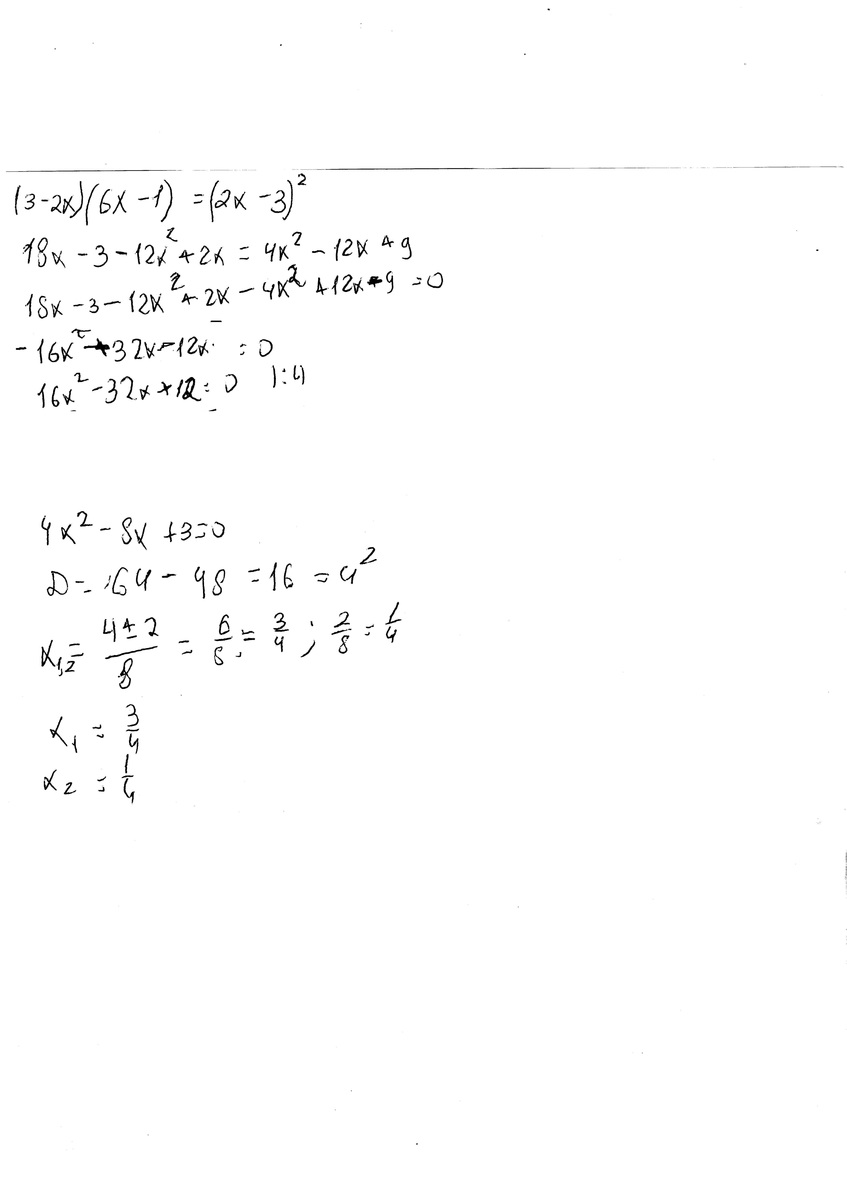 (3-2x)(6x-1) = (2x-3)²
18x - 3 - 12x² + 2x = 4x² - 12x + 9
18x - 3 - 12x² + 2x - 4x² + 12x - 9 = 0
-16x² + 32x - 12x = 0
16x² - 32x + 12 = 0 |:4
4x² - 8x + 3 = 0
D = 64 - 48 = 16 = 4²
x₁,₂ = (4±2)/8 = 6/8 = 3/4 ; 2/8 = 1/4
x₁ = 3/4
x₂ = 1/4